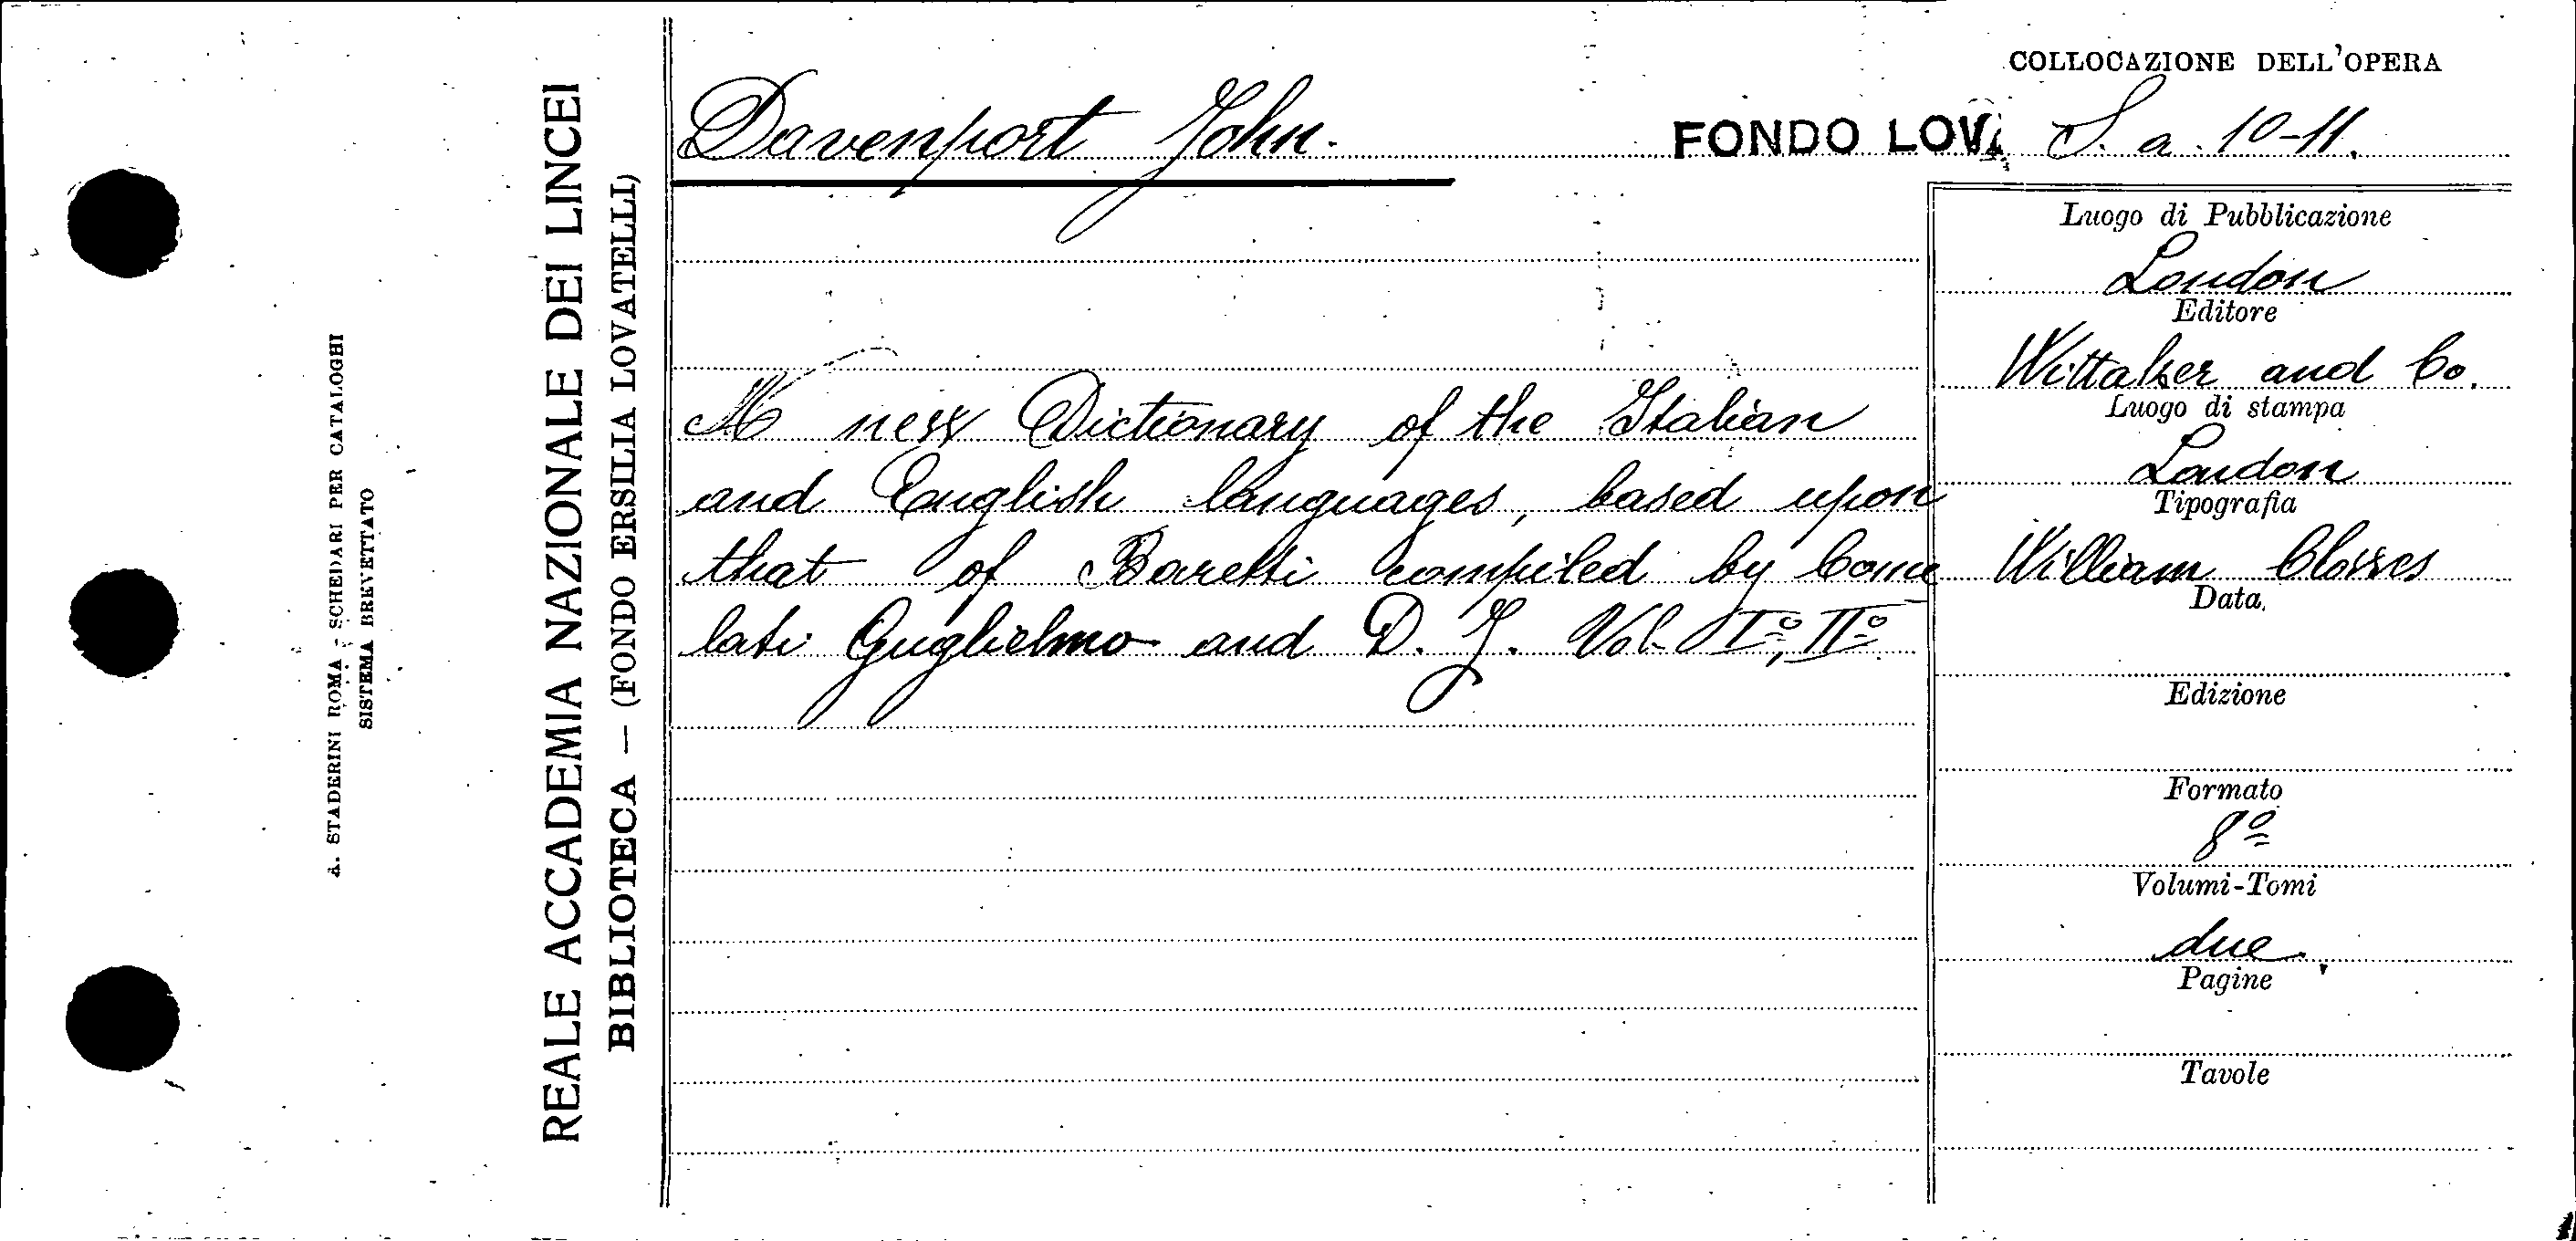 A. STADERINI ROMA - SCHEDARI PER CATALOGHI
SISTEMA BREVETTATO
REALE ACCADEMIA NAZIONALE DEI LINCEI
BIBLIOTECA — (FONDO ERSILIA LOVATELLI)
Davenport John.
A new Dictionary of the Italian
and English languages, based upon
that of Baretti compiled by Come
lati Guglielmo and D. J. Vol. I°, II°
COLLOCAZIONE DELL'OPERA
FONDO LOV. S. a. 10-11.
Luogo di Pubblicazione
London
Editore
Wittaker and Co.
Luogo di stampa
London
Tipografia
William Clowes
Data
Edizione
Formato
8°
Volumi-Tomi
due
Pagine
Tavole